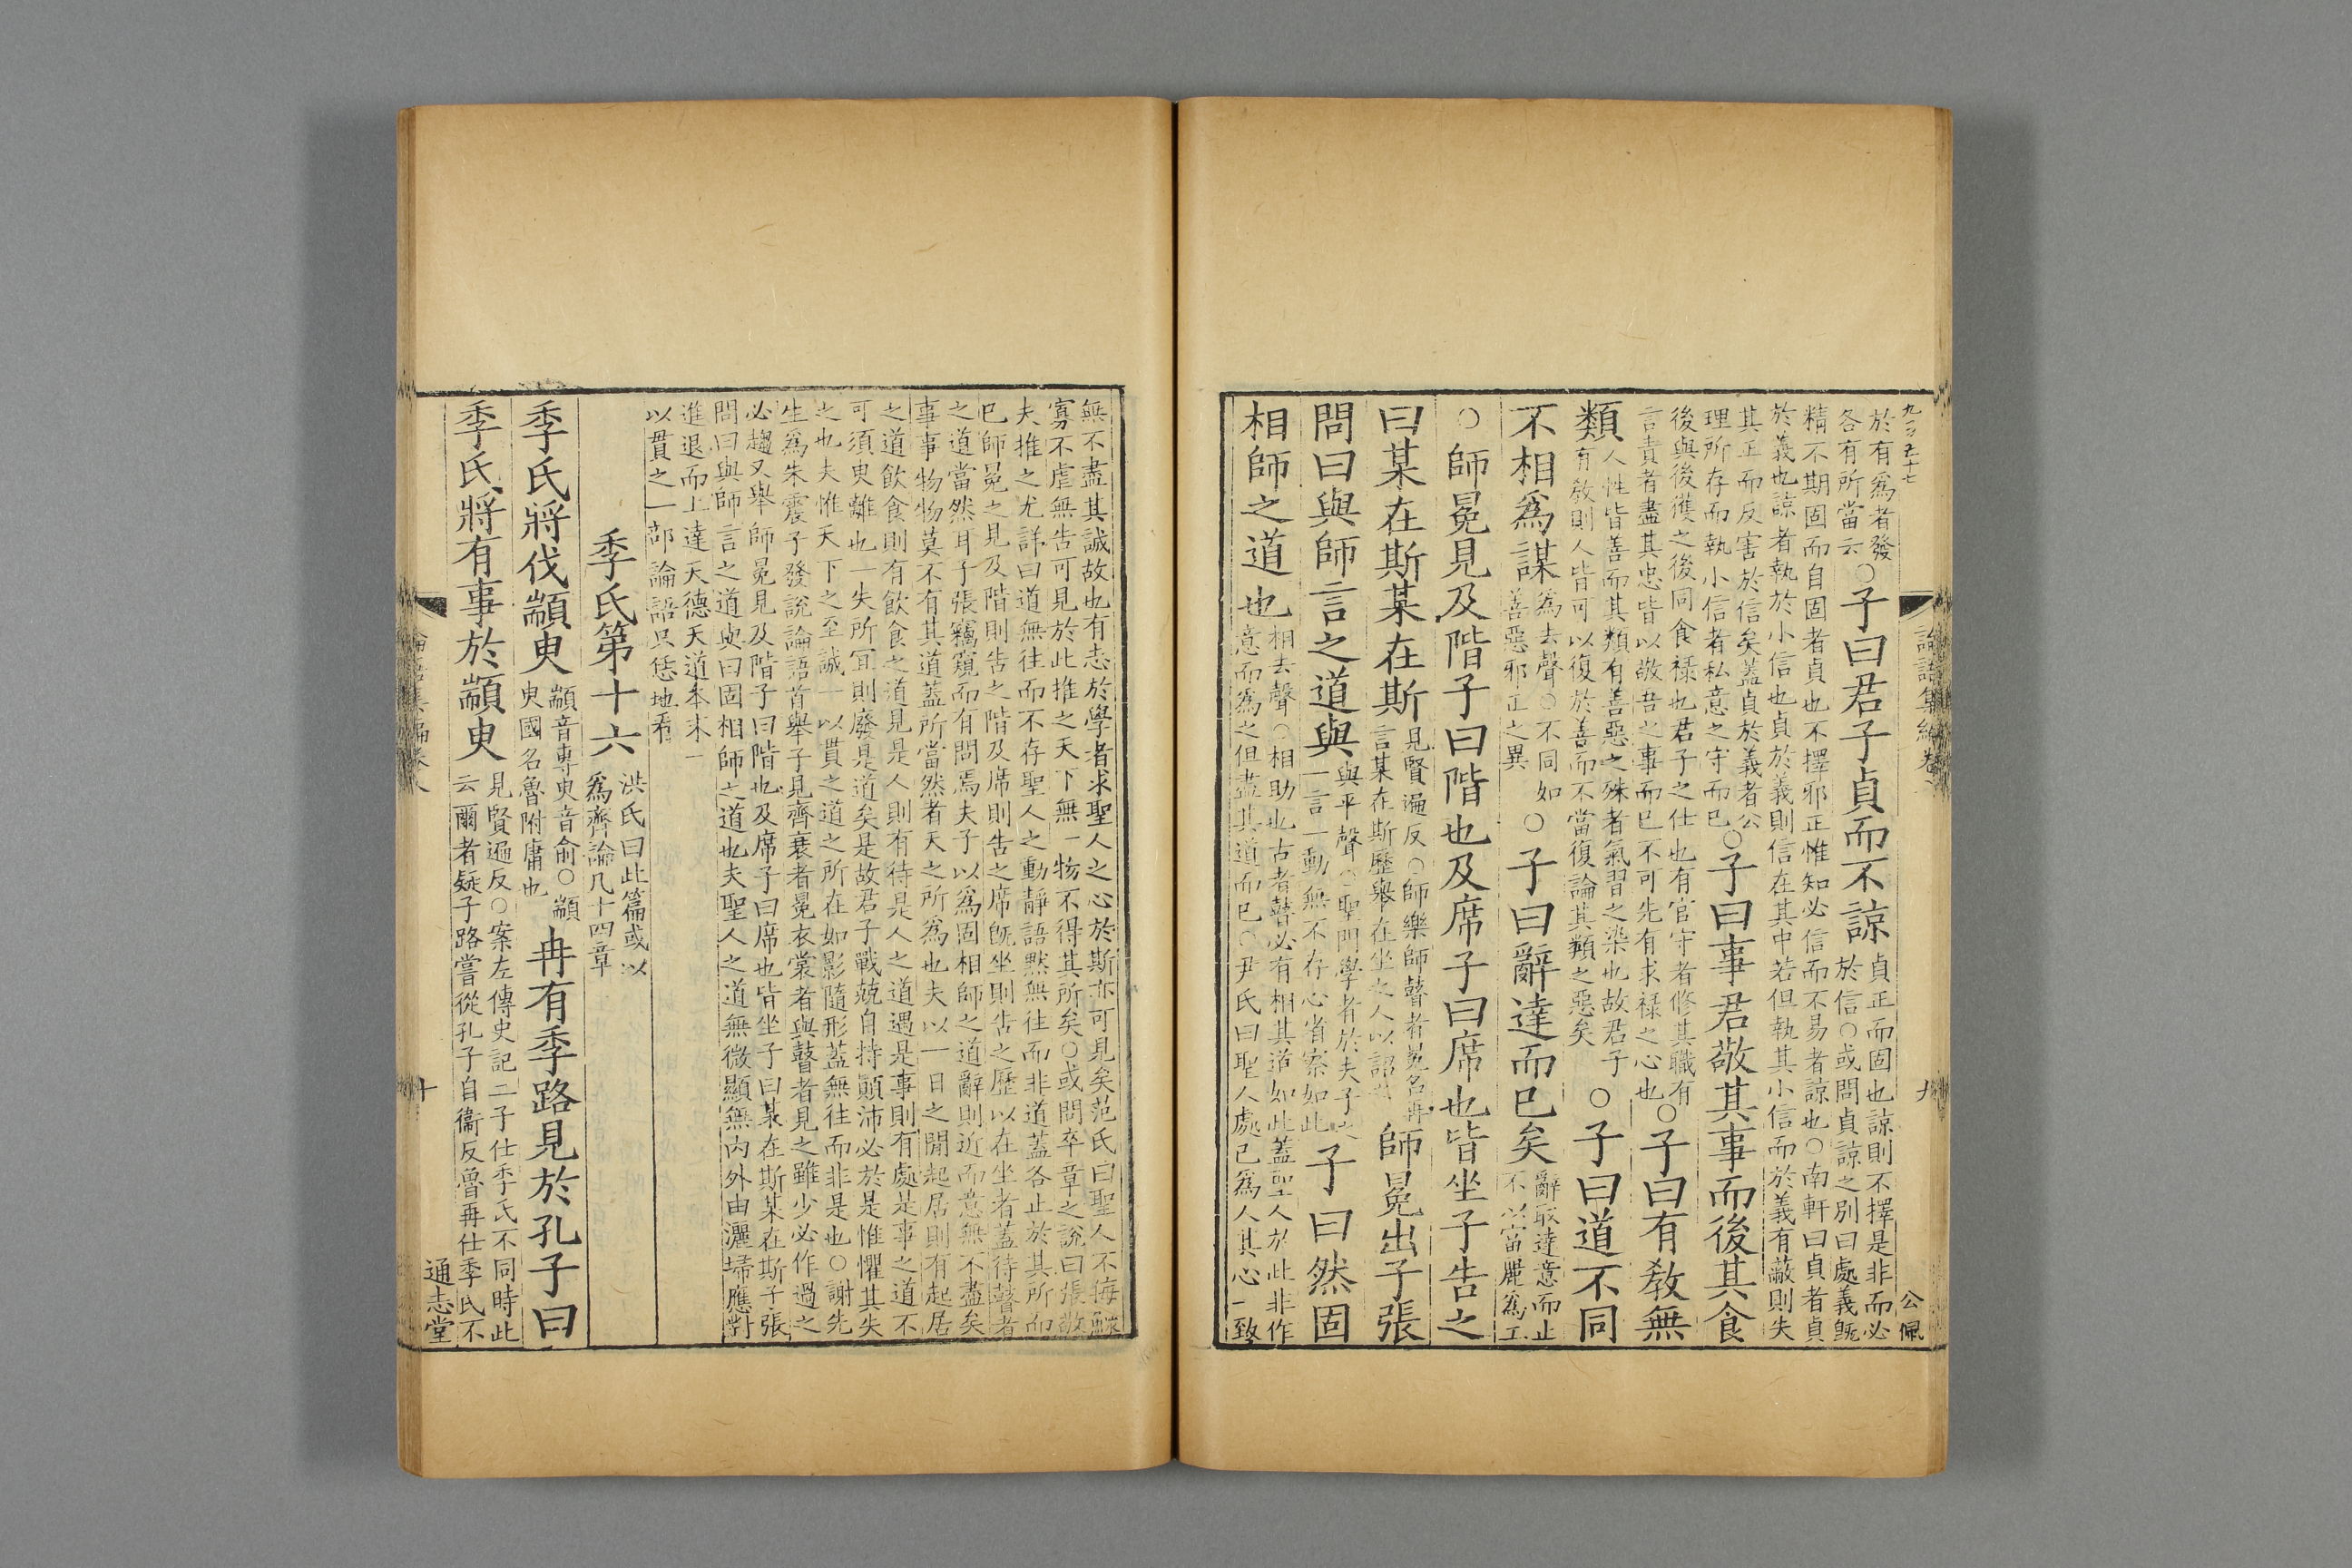 於有爲者發
各有所當云○子曰君子貞而不諒貞正而固也諒則不擇是非而必
於信○或問貞諒之別曰處義旣
精不期固而自固者貞也不擇邪正惟知必信而不易者諒也○南軒曰貞者貞
於義也諒者執於小信也貞於義則信在其中若但執其小信而於義有蔽則失
其正而反害於信矣蓋貞於義者公
理所存而執小信者私意之守而已○子曰事君敬其事而後其食
後與後獲之後同食祿也君子之仕也有官守者修其職有
言責者盡其忠皆以敬吾之事而已不可先有求祿之心也○子曰有敎無
類人性皆善而其類有善惡之殊者氣習之染也故君子
有敎則人皆可以復於善而不當復論其類之惡矣○子曰道不同
不相爲謀爲去聲○不同如
善惡邪正之異○子曰辭達而已矣辭取達意而止
不以富麗爲工
○師冕見及階子曰階也及席子曰席也皆坐子告之
曰某在斯某在斯見賢遍反○師樂師瞽者冕名再
言某在斯歷舉在坐之人以詔之師冕出子張
問曰與師言之道與與平聲○聖門學者於夫子之
一言一動無不存心省察如此子曰然固
相師之道也相去聲○相助也古者瞽必有相其道如此蓋聖人於此非作
意而爲之但盡其道而已○尹氏曰聖人處己爲人其心一致
無不盡其誠故也有志於學者求聖人之心於斯亦可見矣范氏曰聖人不侮鰥
寡不虐無告可見於此推之天下無一物不得其所矣○或問卒章之說曰張敬
夫推之尤詳曰道無往而不存聖人之動靜語默無往而非道蓋各止於其所而
已師冕之見及階則告之階及席則告之席旣坐則告之歷以在坐者蓋待瞽者
之道當然耳子張竊窺而有問焉夫子以爲固相師之道辭則近而意無不盡矣
事事物物莫不有其道蓋所當然者天之所爲也夫以一日之閒起居則有起居
之道飮食則有飮食之道見是人則有待是人之道遇是事則有處是事之道不
可須臾離也一失所宜則廢是道矣是故君子戰兢自持顚沛必於是惟懼其失
之也夫惟天下之至誠一以貫之道之所在如影隨形蓋無往而非是也○謝先
生爲朱震子發說論語首舉子見齊衰者冕衣裳者與瞽者見之雖少必作過之
必趨又舉師冕見及階子曰階也及席子曰席也皆坐子曰某在斯某在斯子張
問曰與師言之道與曰固相師之道也夫聖人之道無微顯無內外由灑掃應對
進退而上達天德天道本末一
以貫之一部論語只恁地看
季氏第十六洪氏曰此篇或以
爲齊論凡十四章
季氏將伐顓臾顓音專臾音俞○顓
臾國名魯附庸也冉有季路見於孔子曰
季氏將有事於顓臾見賢遍反○案左傳史記二子仕季氏不同時此
云爾者疑子路嘗從孔子自衞反魯再仕季氏不
論語集編卷八
九
公佩
論語集編卷八
十
通志堂